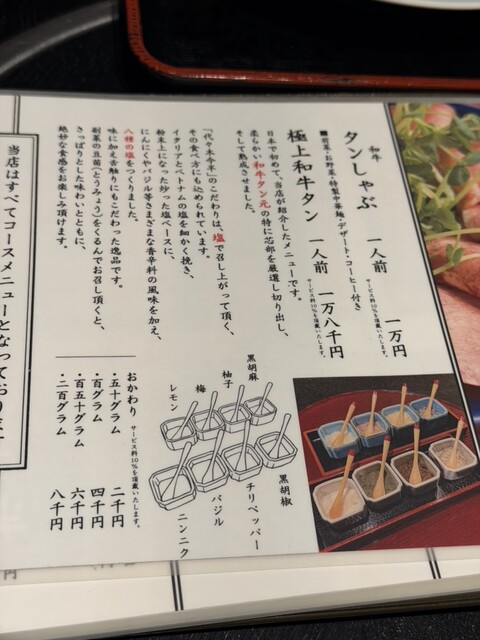 和牛
タンしゃぶ 一人前 一万円
サービス料10%を頂戴いたします。
■前菜・お野菜・特製中華麺・デザート・コーヒー付き
極上和牛タン 一人前 一万八千円
サービス料10%を頂戴いたします。
日本で初めて、当店が紹介したメニューです。
柔らかい和牛タン元の特に芯部を厳選し切り出し、
そして熟成させました。
「代々木今半」のこだわりは、塩で召し上がって頂く、
その食べ方にも込められています。
イタリアとベトナムの塩を細かく挽き、
粉末上になった炒った塩ベースに、
にんにくやバジル等さまざまな香辛料の風味を加え、
八種の塩をつくりました。
味に加え舌触りにもこだわった逸品です。
副菜の豆苗(とうみょう)をくるんでお召し頂くと、
さっぱりとした味わいとともに、
絶妙な食感をお楽しみ頂けます。
黒胡麻
柚子
梅
レモン
黒胡椒
チリペッパー
バジル
ニンニク
おかわり サービス料10%を頂戴いたします。
・五十グラム 二千円
・百グラム 四千円
・百五十グラム 六千円
・二百グラム 八千円
当店はすべてコースメニューとなってお